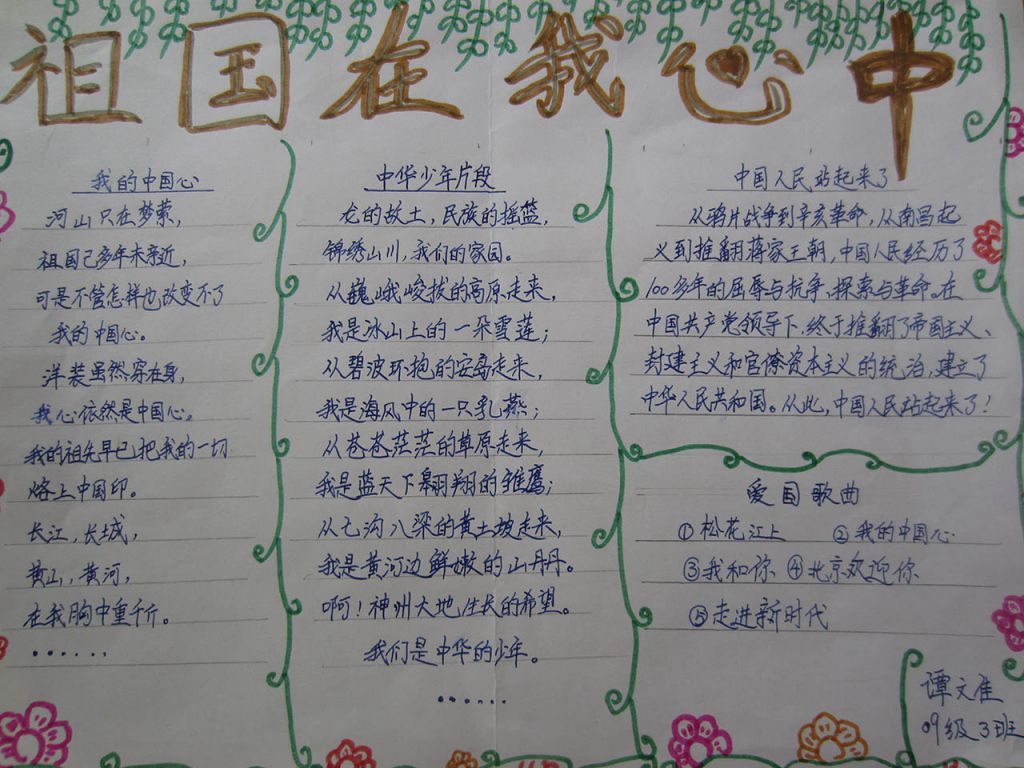 祖国在我心中
我的中国心
河山只在梦萦,
祖国已多年未亲近,
可是不管怎样也改变不了
我的中国心。
洋装虽然穿在身,
我心依然是中国心。
我的祖先早已把我的一切
烙上中国印。
长江,长城,
黄山,黄河,
在我胸中重千斤。
......
中华少年片段
龙的故土,民族的摇篮,
锦绣山川,我们的家园。
从巍峨峻拔的高原走来,
我是冰山上的一朵雪莲;
从碧波环抱的宝岛走来,
我是海风中的一只乳燕;
从苍苍茫茫的草原走来,
我是蓝天下翱翔的雏鹰;
从七沟八梁的黄土坡走来,
我是黄河边鲜嫩的山丹丹。
啊!神州大地生长的希望。
我们是中华的少年。
......
中国人民站起来了
从鸦片战争到辛亥革命,从南昌起
义到推翻蒋家王朝,中国人民经历了
100多年的屈辱与抗争、探索与革命。在
中国共产党领导下,终于推翻了帝国主义、
封建主义和官僚资本主义的统治,建立了
中华人民共和国。从此,中国人民站起来了!
爱国歌曲
①松花江上 ②我的中国心
③我和你 ④北京欢迎你
⑤走进新时代
谭文佳
09级3班